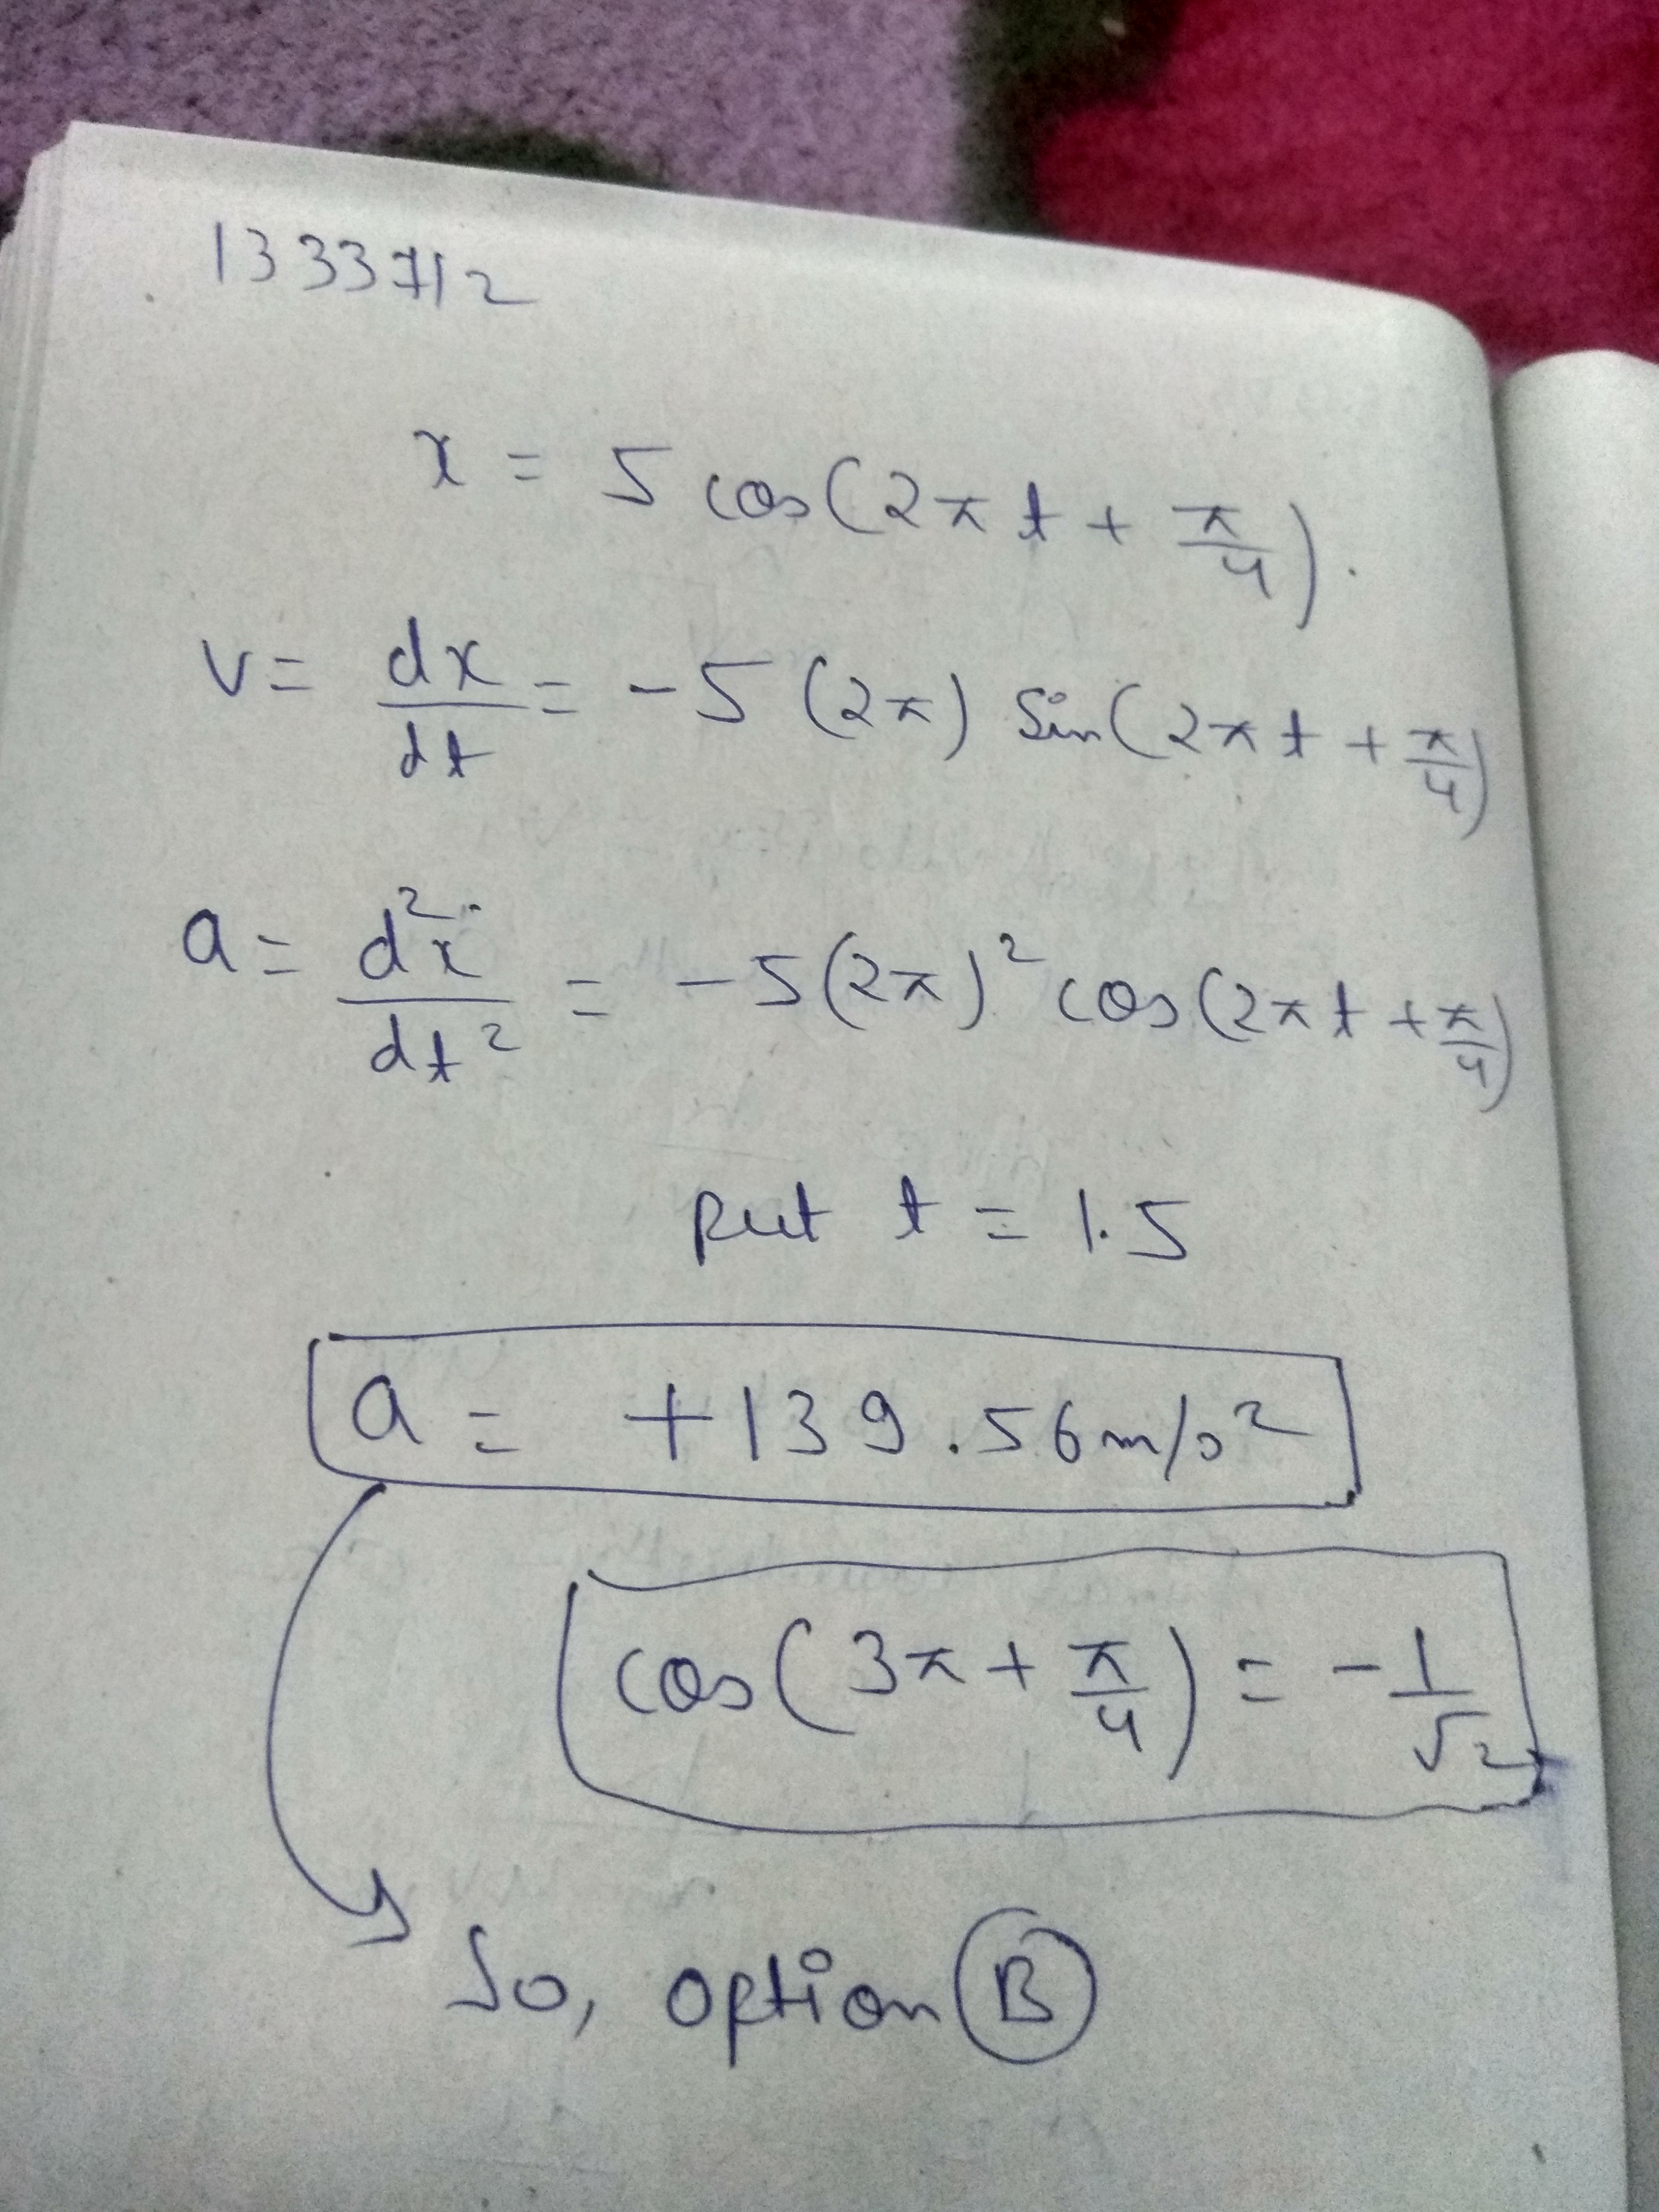 1333712
x = 5 cos(2πt + π/4).
v = dx/dt = -5 (2π) Sin(2πt + π/4)
a = d²x/dt² = -5(2π)² cos(2πt + π/4)
Put t = 1.5
a = +139.56 m/s²
cos(3π + π/4) = -1/√2
So, option B